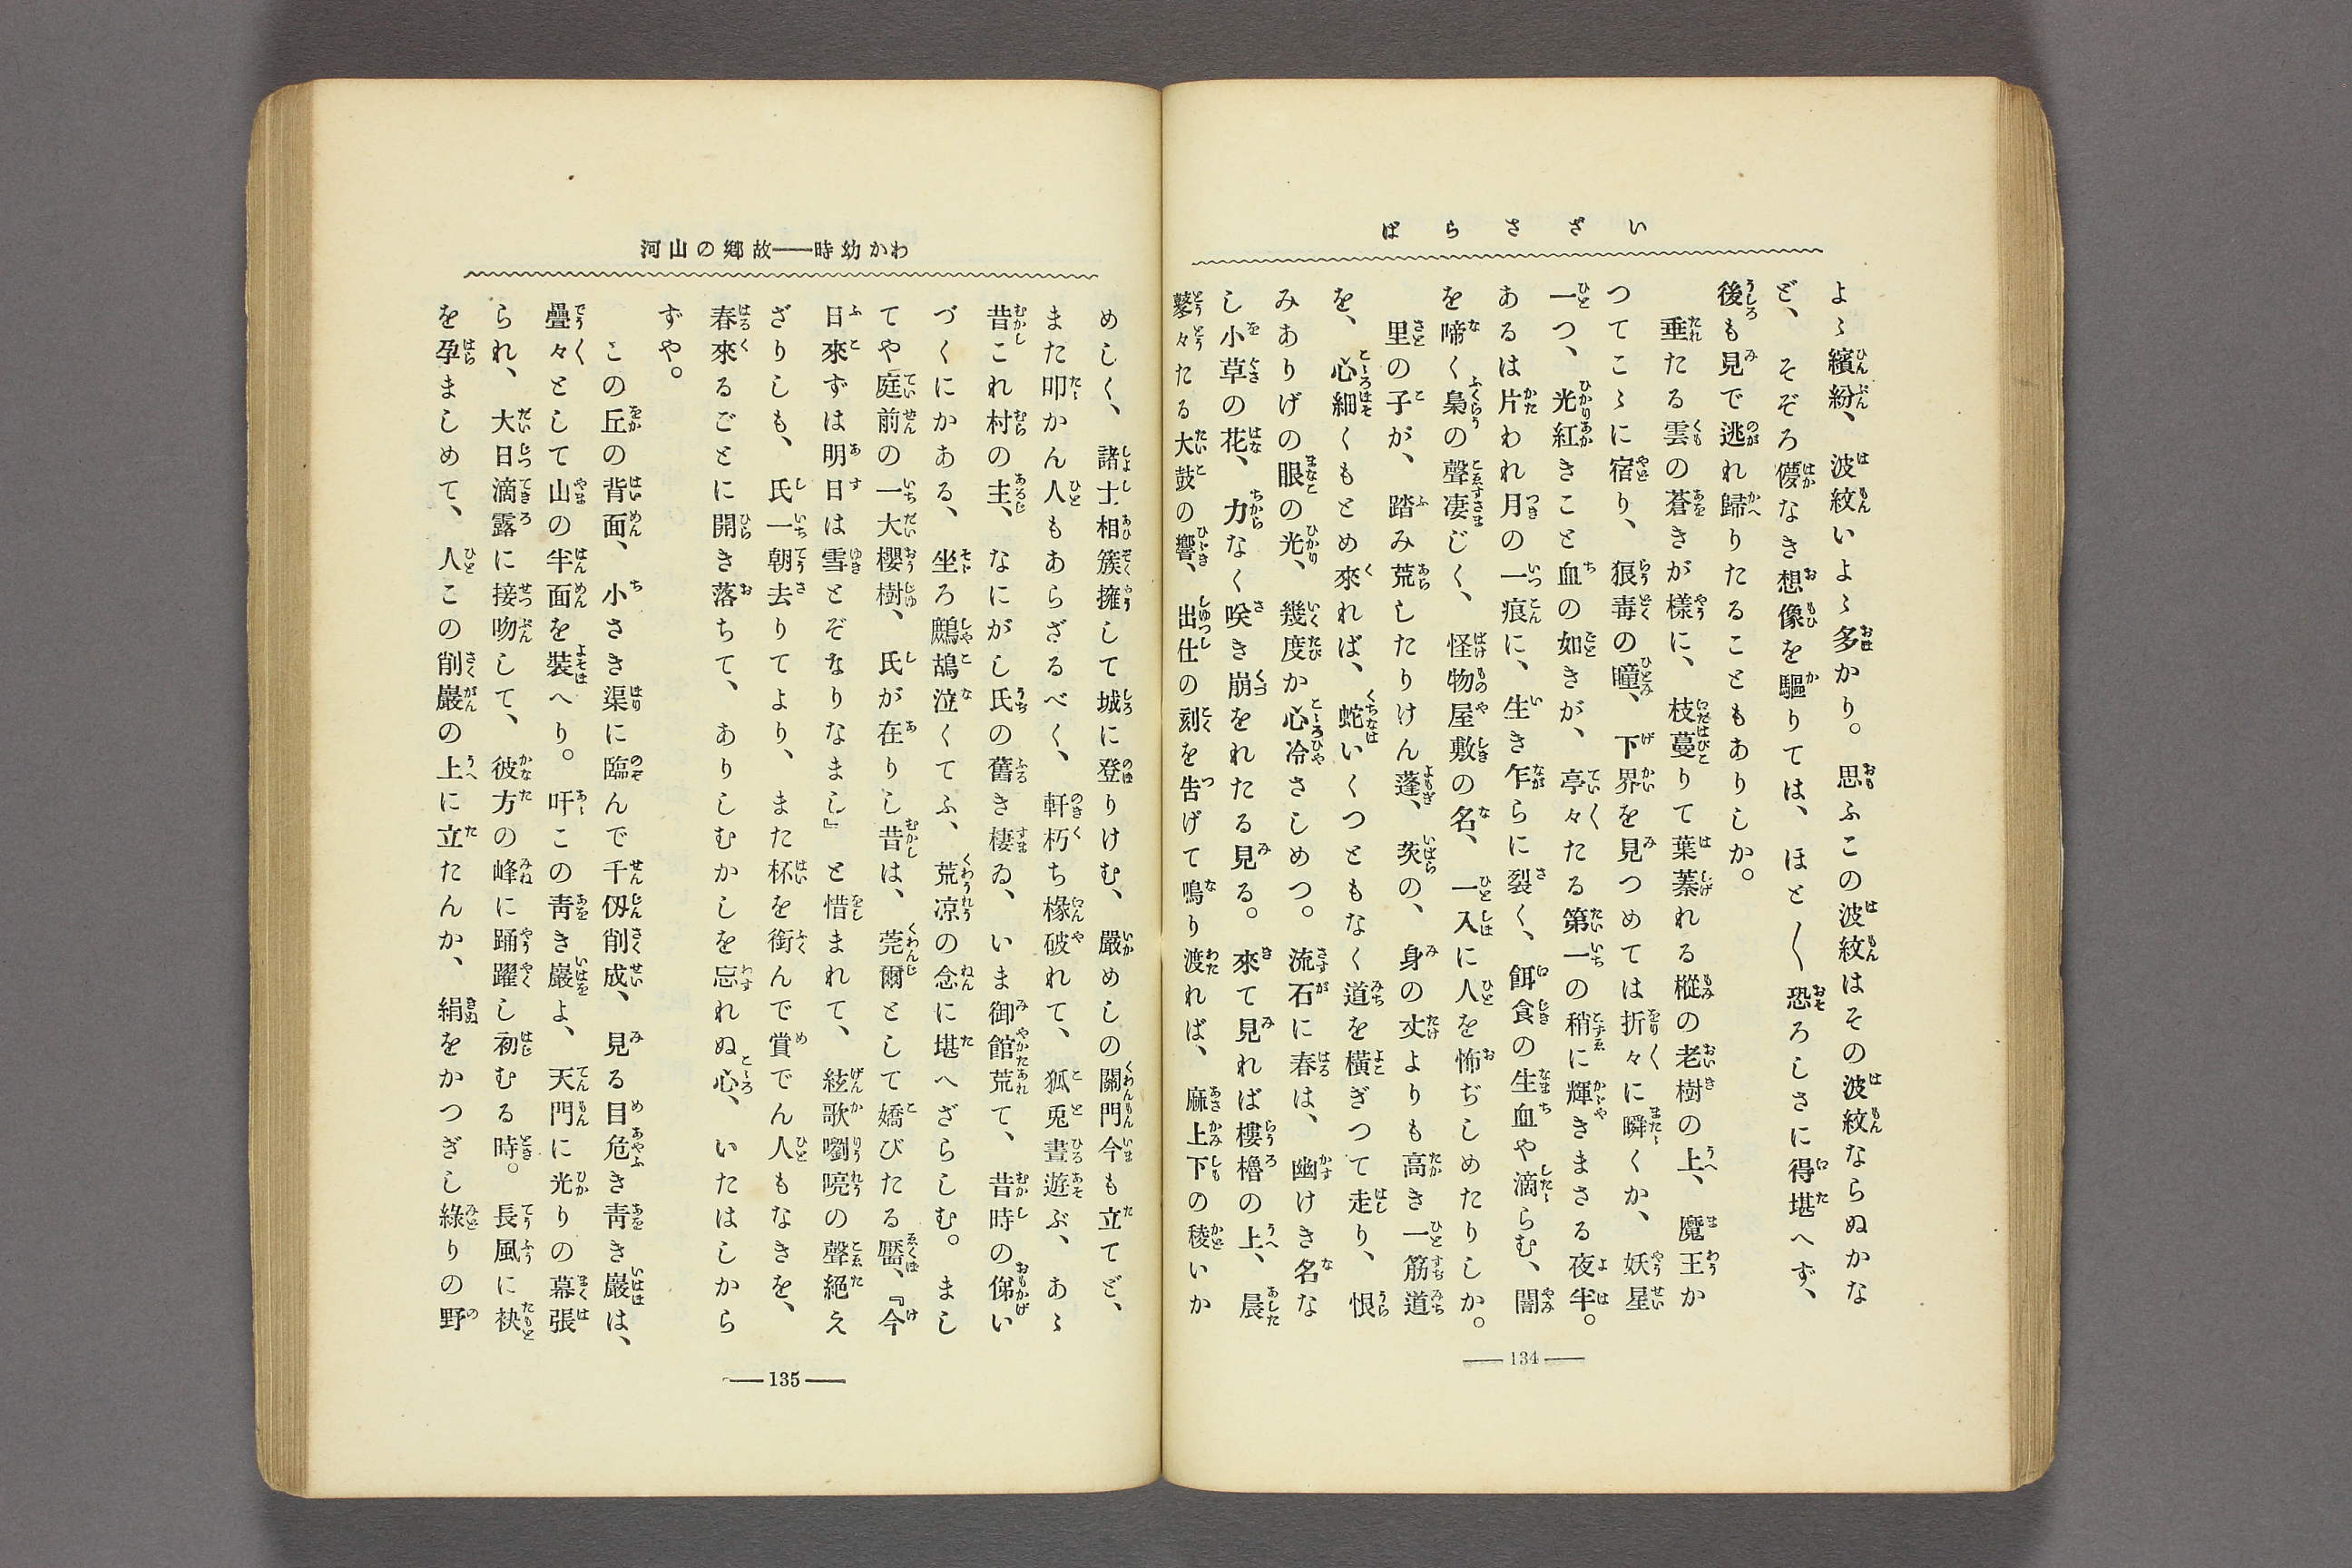 いざさらば
よゝ繽紛、波紋いよゝ多かり。思ふこの波紋はその波紋ならぬかな
ど、そぞろ儚なき想像を驅りては、ほと〱恐ろしさに得堪へず、
後も見で逃れ歸りたることもありしか。
垂たる雲の蒼きが樣に、枝蔓りて葉蓁れる樅の老樹の上、魔王か
つてこゝに宿り、狼毒の瞳、下界を見つめては折々に瞬くか、妖星
一つ、光紅きこと血の如きが、亭々たる第一の稍に輝きまさる夜半。
あるは片われ月の一痕に、生き乍らに裂く、餌食の生血や滴らむ、闇
を啼く梟の聲凄じく、怪物屋敷の名、一入に人を怖ぢしめたりしか。
里の子が、踏み荒したりけん蓬、茨の、身の丈よりも高き一筋道
を、心細くもとめ來れば、蛇いくつともなく道を橫ぎつて走り、恨
みありげの眼の光、幾度か心冷さしめつ。流石に春は、幽けき名な
し小草の花、力なく咲き崩をれたる見る。來て見れば樓櫓の上、晨
鼕々たる大鼓の響、出仕の刻を告げて鳴り渡れば、麻上下の稜いか
134
わか幼時――故鄕の山河
めしく、諸士相簇擁して城に登りけむ、嚴めしの關門今も立てど、
また叩かん人もあらざるべく、軒朽ち椽破れて、狐兎晝遊ぶ、あゝ
昔これ村の主、なにがし氏の舊き棲ゐ、いま御館荒て、昔時の俤い
づくにかある、坐ろ鷓鴣泣くてふ、荒凉の念に堪へざらしむ。まし
てや庭前の一大櫻樹、氏が在りし昔は、莞爾として嬌びたる靨、『今
日來ずは明日は雪とぞなりなまし』と惜まれて、絃歌嚠喨の聲絕え
ざりしも、氏一朝去りてより、また杯を銜んで賞でん人もなきを、
春來るごとに開き落ちて、ありしむかしを忘れぬ心、いたはしから
ずや。
この丘の背面、小さき渠に臨んで千仭削成、見る目危き靑き巖は、
疊々として山の半面を裝へり。吁この靑き巖よ、天門に光りの幕張
られ、大日滴露に接吻して、彼方の峰に踊躍し初むる時。長風に袂
を孕ましめて、人この削巖の上に立たんか、絹をかつぎし綠りの野
135